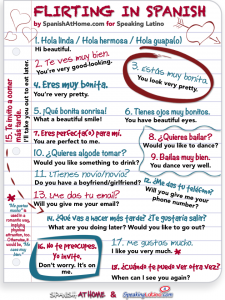 FLIRTING IN SPANISH
by SpanishAtHome.com for Speaking Latino
1. Hola linda / Hola hermosa / Hola guapa(o)
Hi beautiful.
2. Te ves muy bien.
You're very good-looking.
3. ¡Estás muy bonita.
You look very pretty.
4. Eres muy bonita.
You're very pretty.
5. ¡Qué bonita sonrisa!
What a beautiful smile!
6. Tienes ojos muy bonitos.
You have beautiful eyes.
7. Eres perfecta(o) para mí.
You are perfect to me.
8. ¿Quieres bailar?
Would you like to dance?
9. Bailas muy bien.
You dance very well.
10. ¿Quieres algode tomar?
Would you like something to drink?
11. ¿Tienes novio/novia?
Do you have a boyfriend/girlfriend?
12. ¿Me das tu teléfono?
Will you give me your
phone number?
13. ¿Me das tu email?
Will you give me your email?
14. ¿Qué vas a hacer más tarde? ¿Te gustaría salir?
What are you doing later? Would you like to go out?
15. Te invito a comer
más tarde.
I'll take you out to eat later.
16. No te preocupes.
Yo invito.
Don't worry. It's on
me.
17. Me gustas mucho.
I like you very much.
18. ¿Cuándo te puedo ver otra vez?
When can I see you again?
SPANISH AT HOME & SpeakingLatino.com